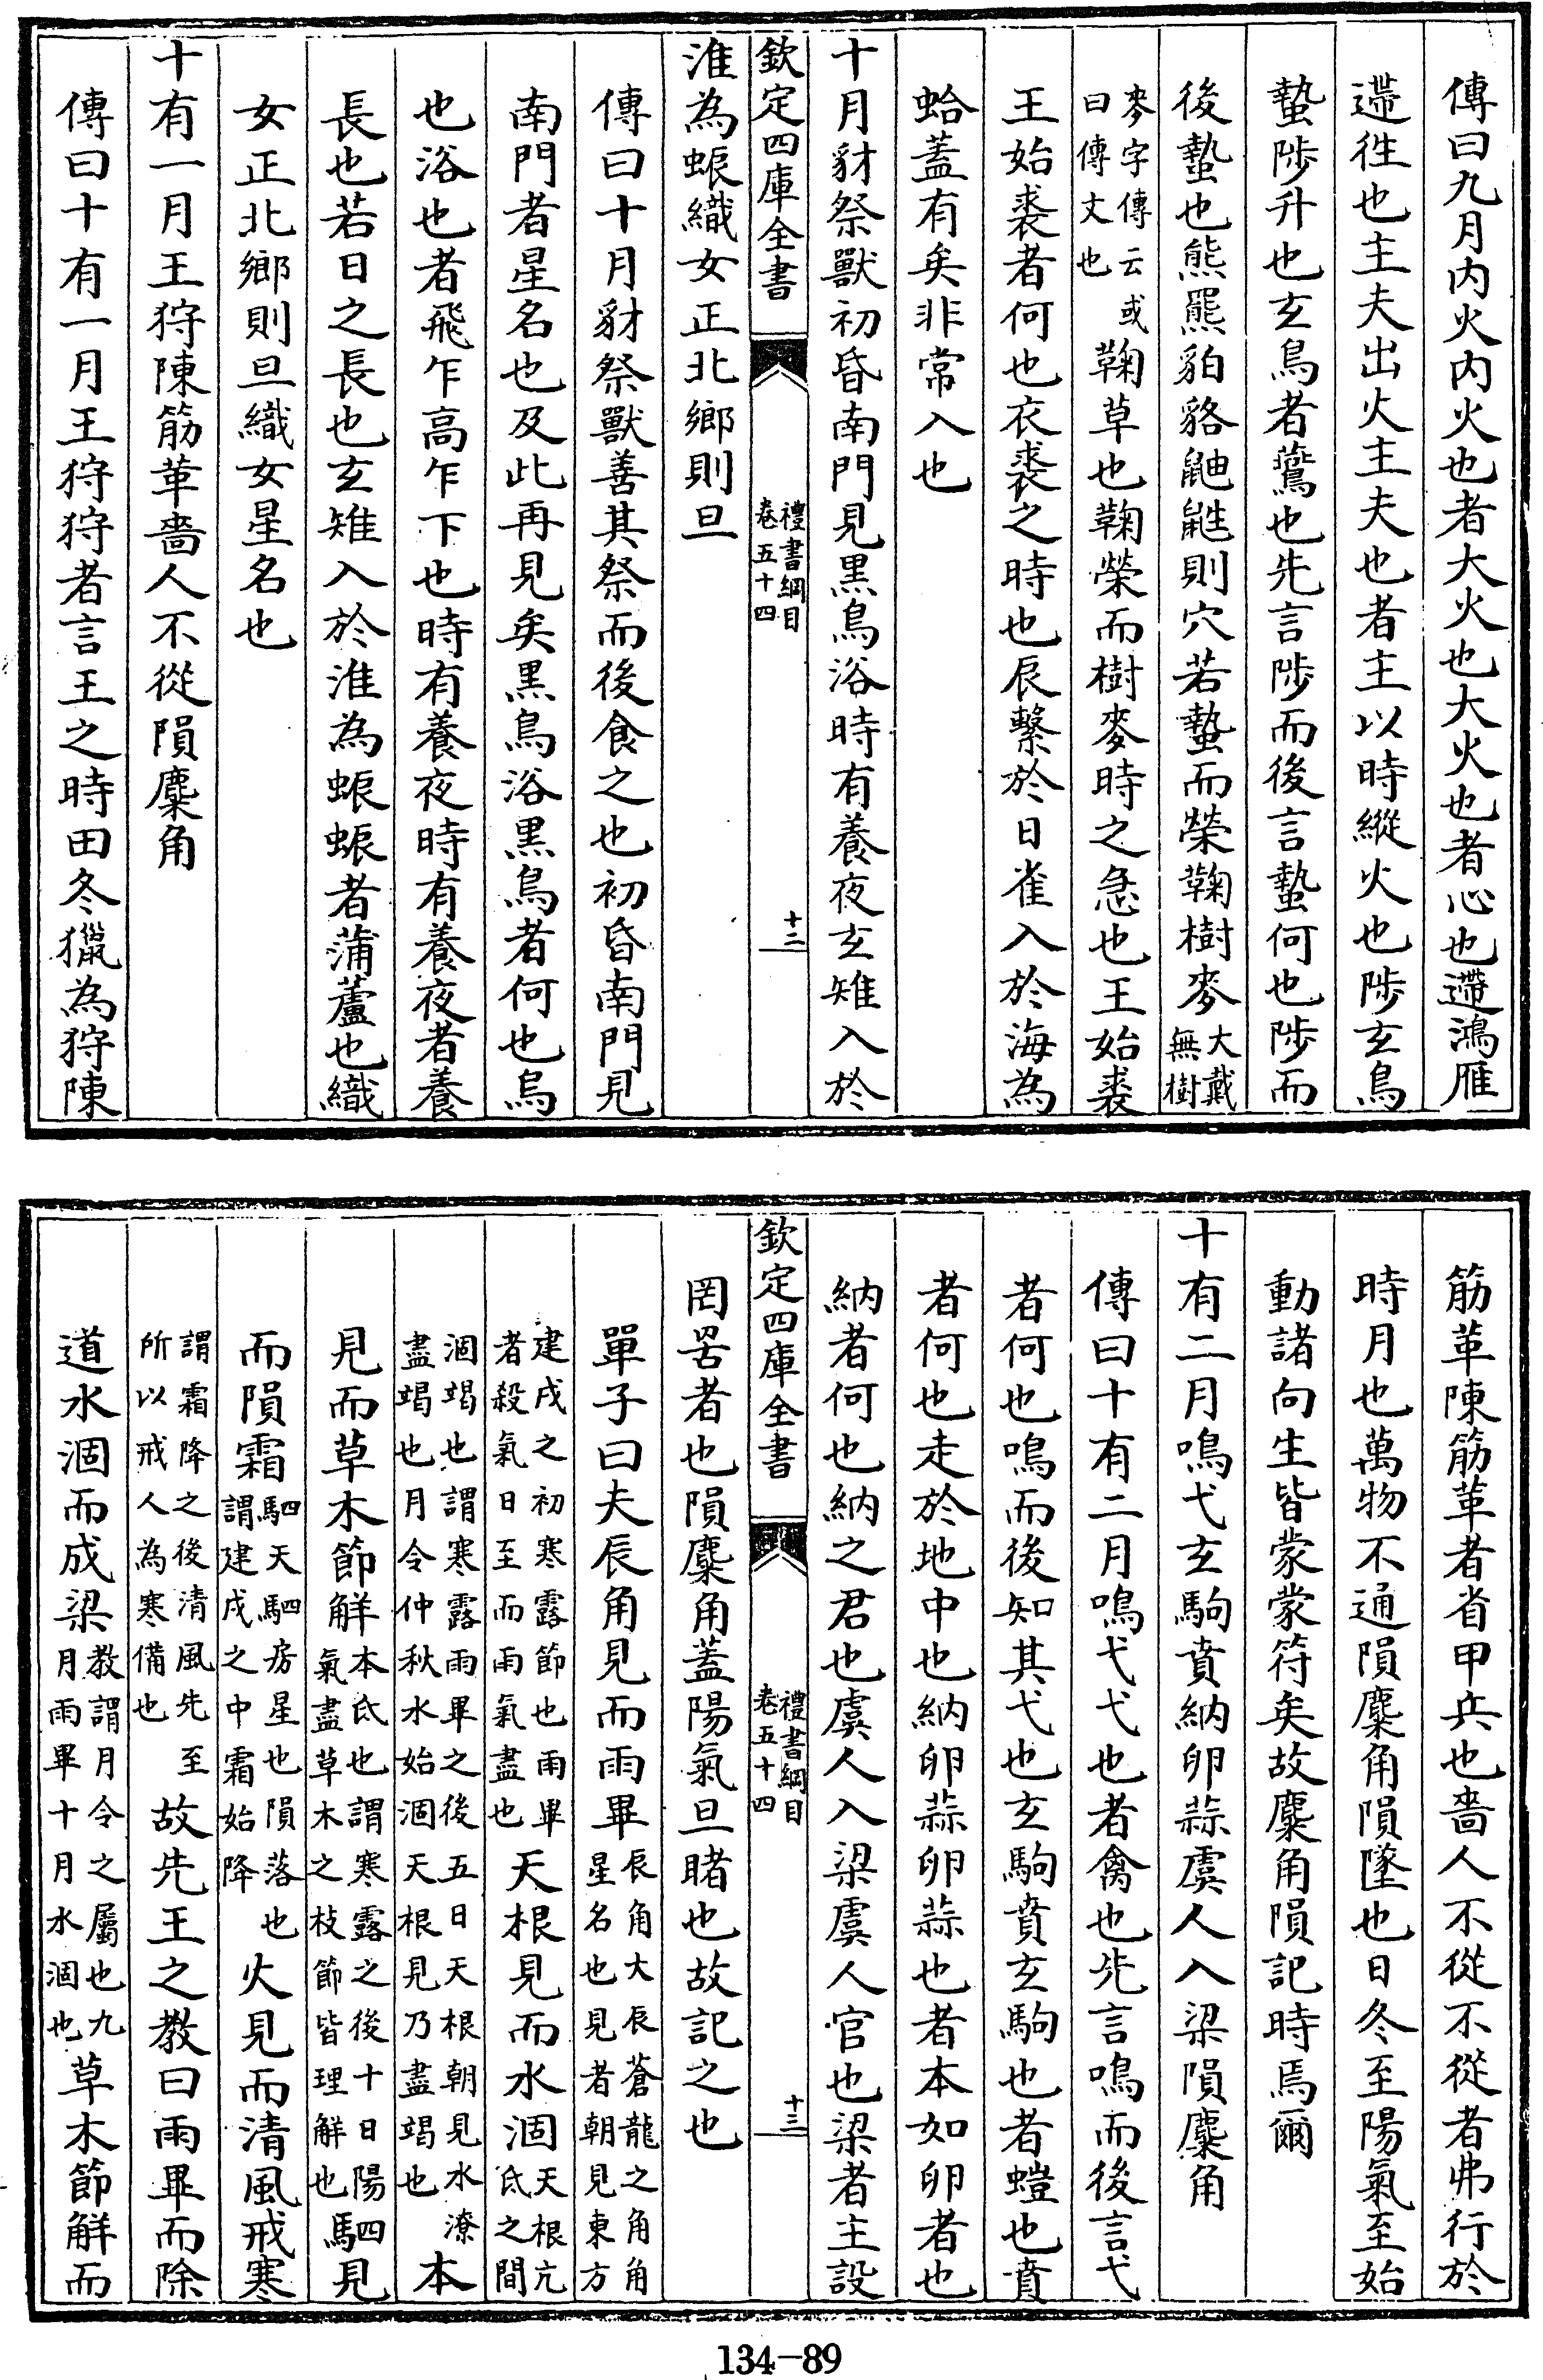 傳曰九月内火内火也者大火也大火也者心也遰鴻雁
遰往也主夫出火主夫也者主以時縱火也陟玄鳥
蟄陟升也玄鳥者鷰也先言陟而後言蟄何也陟而
後蟄也熊羆貊貉鼬鼪則穴若蟄而榮鞠樹麥大戴無樹
麥字傳云或曰傳文也鞠草也鞠榮而樹麥時之急也王始裘
王始裘者何也衣裘之時也辰繫於日雀入於海為
蛤蓋有矣非常入也
十月豺祭獸初昏南門見黑鳥浴時有養夜玄雉入於
欽定四庫全書
禮書綱目
卷五十四
十二
淮為蜄織女正北鄉則旦
傳曰十月豺祭獸善其祭而後食之也初昏南門見
南門者星名也及此再見矣黑鳥浴黑鳥者何也烏
也浴也者飛乍高乍下也時有養夜時有養夜者養
長也若日之長也玄雉入於淮為蜄蜄者蒲蘆也織
女正北鄉則旦織女星名也
十有一月王狩陳筋革嗇人不從隕麋角
傳曰十有一月王狩狩者言王之時田冬獵為狩陳
筋革陳筋革者省甲兵也嗇人不從不從者弗行於
時月也萬物不通隕麋角隕墜也日冬至陽氣至始
動諸向生皆蒙蒙符矣故麋角隕記時焉爾
十有二月鳴弋玄駒賁納卵蒜虞人入梁隕麋角
傳曰十有二月鳴弋弋也者禽也先言鳴而後言弋
者何也鳴而後知其弋也玄駒賁玄駒也者螘也賁
者何也走於地中也納卵蒜卵蒜也者本如卵者也
納者何也納之君也虞人入梁虞人官也梁者主設
欽定四庫全書
禮書綱目
卷五十四
十三
罔罟者也隕麋角蓋陽氣旦睹也故記之也
單子曰夫辰角見而雨畢辰角大辰蒼龍之角角星名也見者朝見東方
建戌之初寒露節也雨畢者殺氣日至而雨氣盡也天根見而水涸天根亢氐之間
涸竭也謂寒露雨畢之後五日天根朝見水潦盡竭也月令仲秋水始涸天根見乃盡竭也本
見而草木節解本氐也謂寒露之後十日陽氣盡草木之枝節皆理解也駟見
而隕霜駟天駟房星也隕落也謂建戌之中霜始降火見而清風戒寒
謂霜降之後清風先至所以戒人為寒備也故先王之教曰雨畢而除
道水涸而成梁教謂月令之屬也九月雨畢十月水涸也草木節解而
134-89